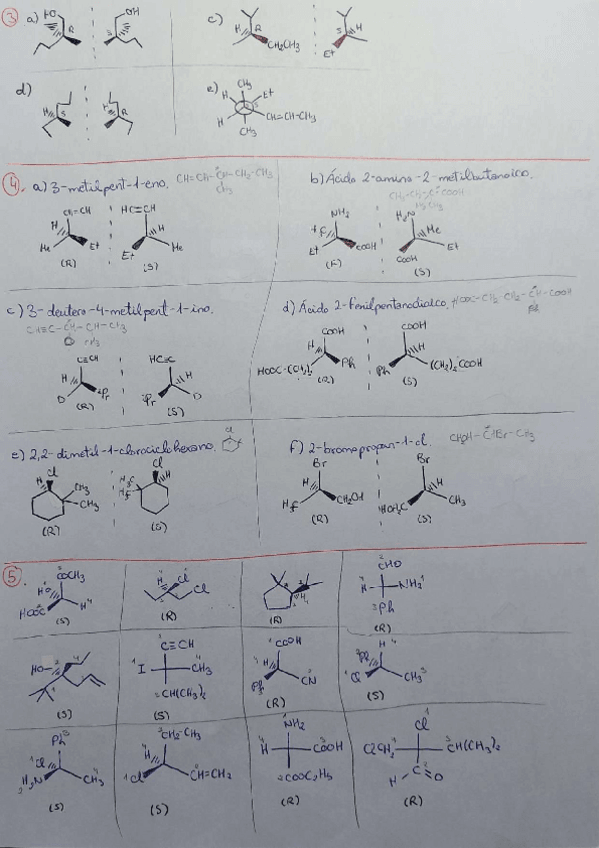 3 a) HO R S OH c) H R CH₂CH₃ S H Et
d) H S H R e) CH₃ H Et S H CH=CH-CH₃ CH₃
4. a) 3-metilpent-1-eno. CH=CH-CH-CH₂-CH₃ CH₃
CH=CH H Me Et (R) HC=CH H Et Me (S)
b) Ácido 2-amino-2-metilbutanoico.
NH₂ Et COOH (R) H₂N Me Et COOH (S)
c) 3-deutero-4-metilpent-1-ino.
CH≡C-CH-CH-CH₃ D CH₃
C≡CH H D iPr (R) HC≡C H iPr D (S)
d) Ácido 2-fenilpentanodioico. HOOC-CH₂-CH₂-CH-COOH Ph
COOH H HOOC-(CH₂)₂ Ph (R) COOH H Ph (CH₂)₂COOH (S)
e) 2,2-dimetil-1-clorociclohexano. Cl
H Cl CH₃ CH₃ (R) Cl H H₃C H₃C (S)
f) 2-bromopropan-1-ol. CH₂OH-CHBr-CH₃
Br H H₃C CH₂OH (R) Br H HOH₂C CH₃ (S)
5.
COCH₃ HO HOOC H (S)
H Cl Cl (R)
H (R)
CHO H NH₂ Ph (R)
HO (S)
C≡CH I CH₃ CH(CH₃)₂ (S)
COOH H Ph CN (R)
H Ph Cl CH₃ (S)
Ph Cl H₂N CH₃ (S)
CH₂-CH₃ H Cl CH=CH₂ (S)
NH₂ H COOH COOC₂H₅ (R)
Cl ClCH₂ CH(CH₃)₂ H C O (R)